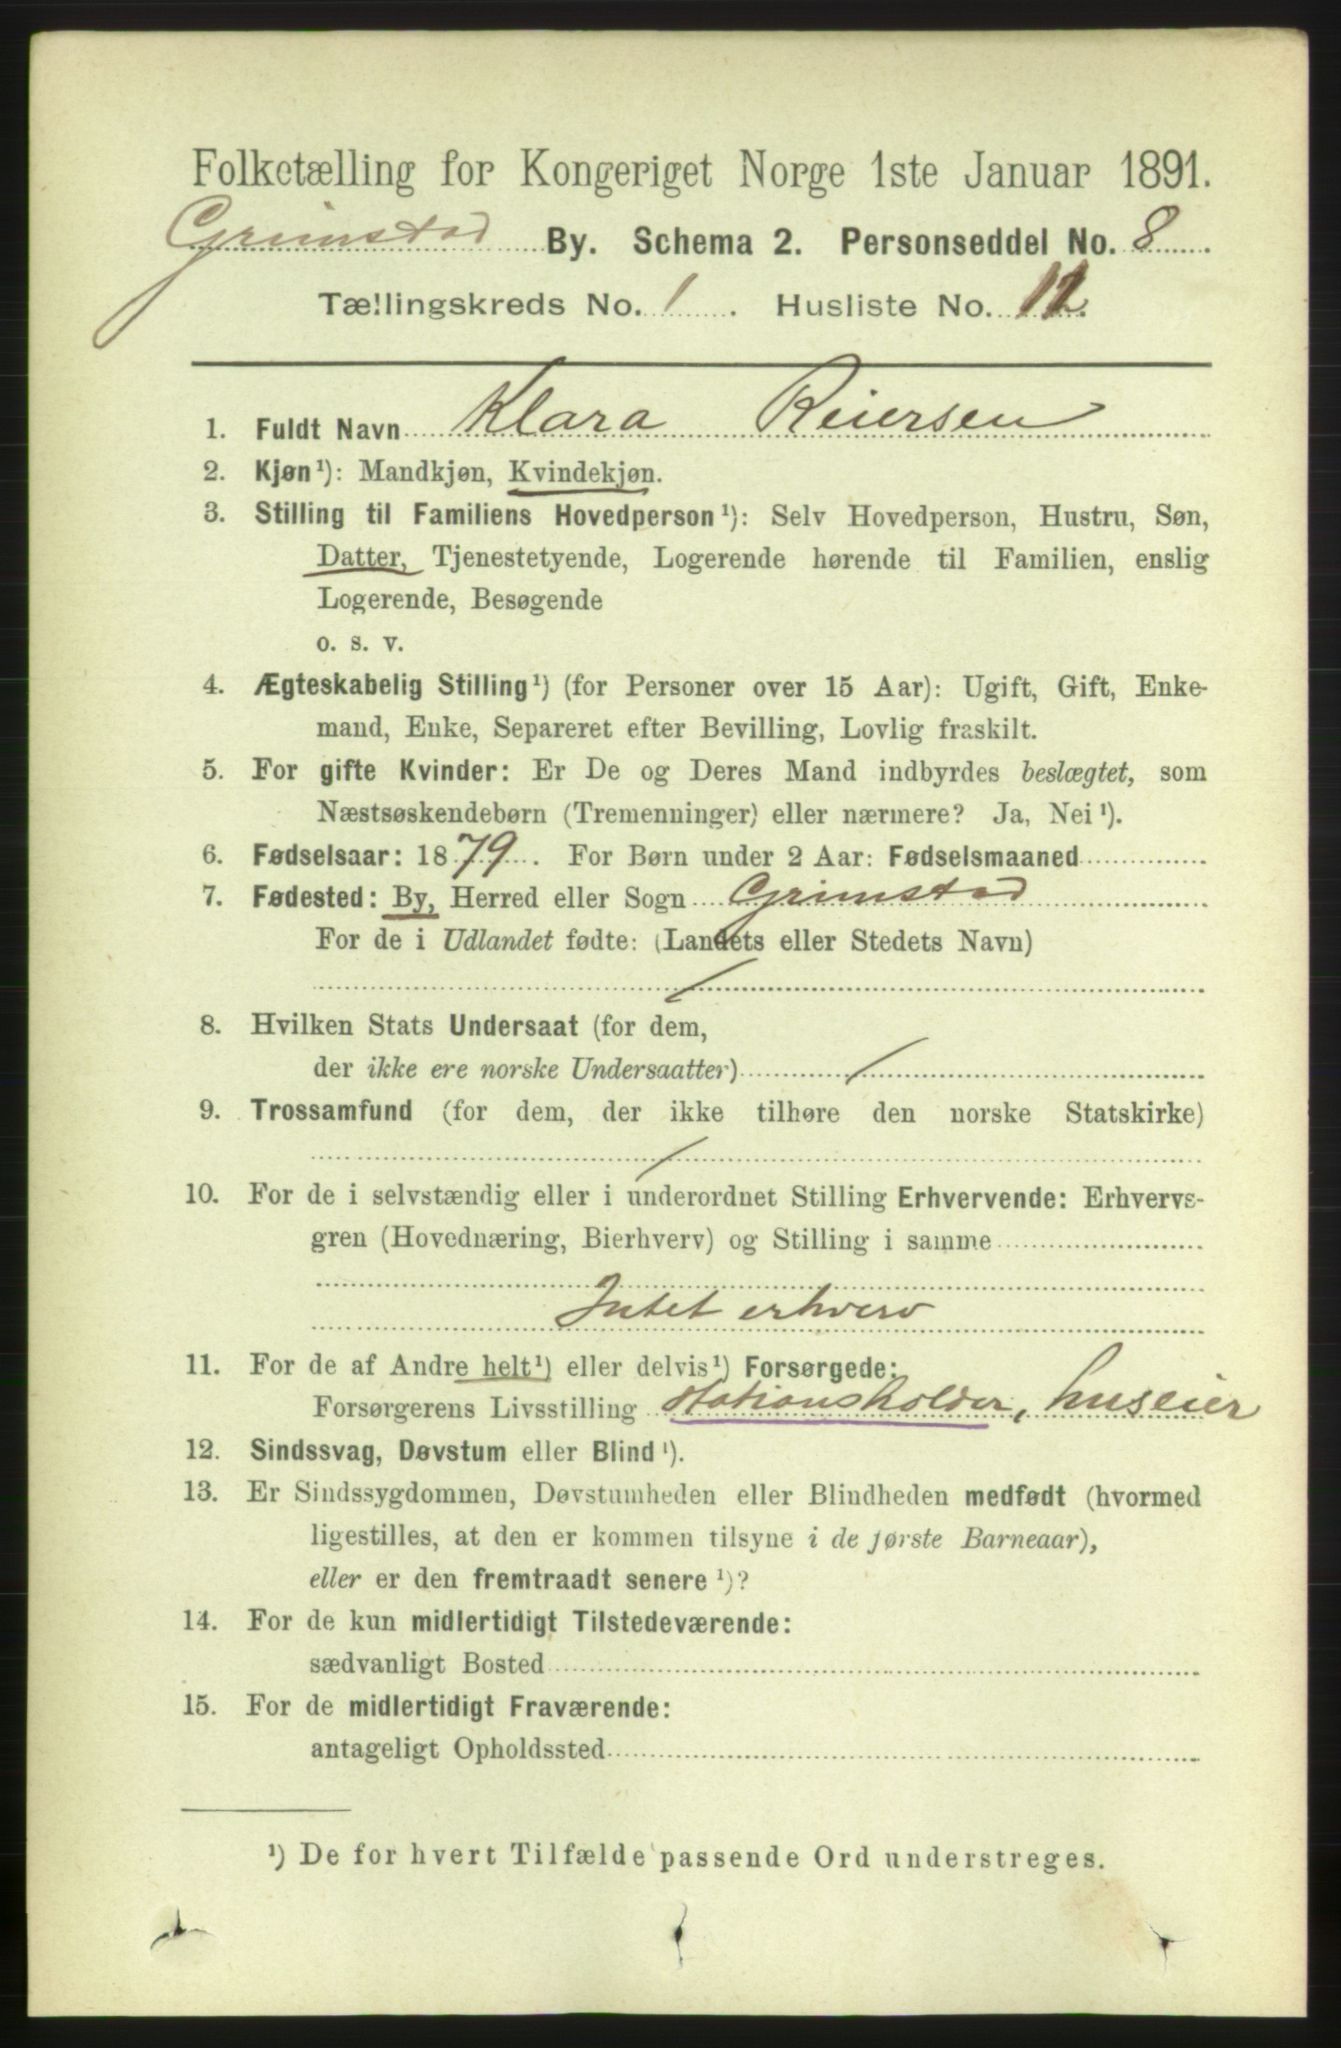 Folketælling for Kongeriget Norge 1ste Januar 1891.
Grimstad By. Schema 2. Personseddel No. 8.
Tællingskreds No. 1. Husliste No. 12.
1. Fuldt Navn Klara Reiersen
2. Kjøn¹): Mandkjøn, Kvindekjøn.
3. Stilling til Familiens Hovedperson¹): Selv Hovedperson, Hustru, Søn,
Datter, Tjenestetyende, Logerende hørende til Familien, enslig
Logerende, Besøgende
o. s. v.
4. Ægteskabelig Stilling¹) (for Personer over 15 Aar): Ugift, Gift, Enke-
mand, Enke, Separeret efter Bevilling, Lovlig fraskilt.
5. For gifte Kvinder: Er De og Deres Mand indbyrdes beslægtet, som
Næstsøskendebørn (Tremenninger) eller nærmere? Ja, Nei¹).
6. Fødselsaar: 1879. For Børn under 2 Aar: Fødselsmaaned
7. Fødested: By, Herred eller Sogn Grimstad
For de i Udlandet fødte: (Landets eller Stedets Navn)
/
8. Hvilken Stats Undersaat (for dem,
der ikke ere norske Undersaatter) /
9. Trossamfund (for dem, der ikke tilhøre den norske Statskirke)
/
10. For de i selvstændig eller i underordnet Stilling Erhvervende: Erhvervs-
gren (Hovednæring, Bierhverv) og Stilling i samme
Intet erhverv
11. For de af Andre helt¹) eller delvis¹) Forsørgede:
Forsørgerens Livsstilling Stationsholder, huseier
12. Sindssvag, Døvstum eller Blind¹).
13. Er Sindssygdommen, Døvstumheden eller Blindheden medfødt (hvormed
ligestilles, at den er kommen tilsyne i de første Barneaar),
eller er den fremtraadt senere¹)?
14. For de kun midlertidigt Tilstedeværende:
sædvanligt Bosted
15. For de midlertidigt Fraværende:
antageligt Opholdssted
¹) De for hvert Tilfælde passende Ord understreges.